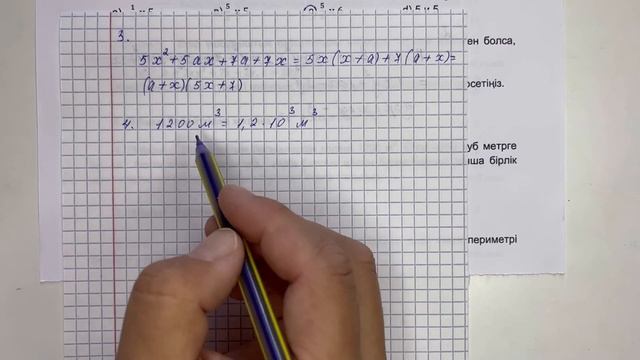 3.
5x² + 5ax + 7a + 7x = 5x(x+a) + 7(a+x) =
(a+x)(5x+7)
4. 1200 м³ = 1,2 · 10³ м³
ен болса,
рсетіңіз.
уб метрге
ша бірлік
периметрі